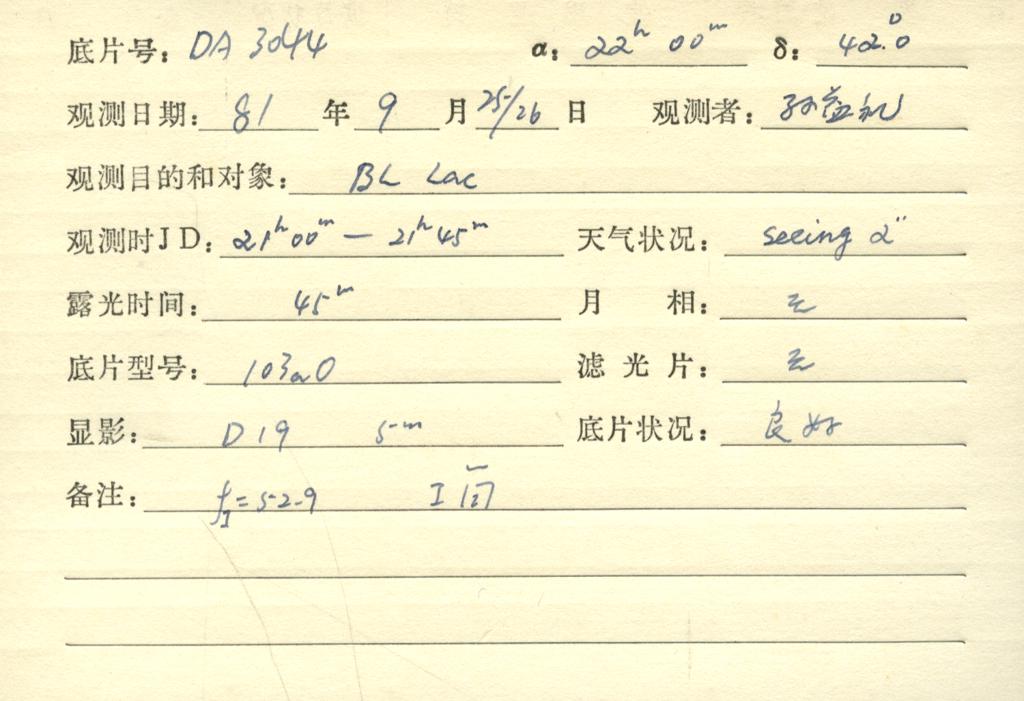 底片号: DA 3044 α: 22ʰ 00ᵐ δ: 42.°0
观测日期: 81 年 9 月 25/26 日 观测者: 孙益礼
观测目的和对象: BL Lac
观测时JD: 21ʰ00ᵐ — 21ʰ45ᵐ 天气状况: seeing 2"
露光时间: 45ᵐ 月相: 无
底片型号: 103aO 滤光片: 无
显影: D19 5ᵐ 底片状况: 良好
备注: f_I=52.9 I